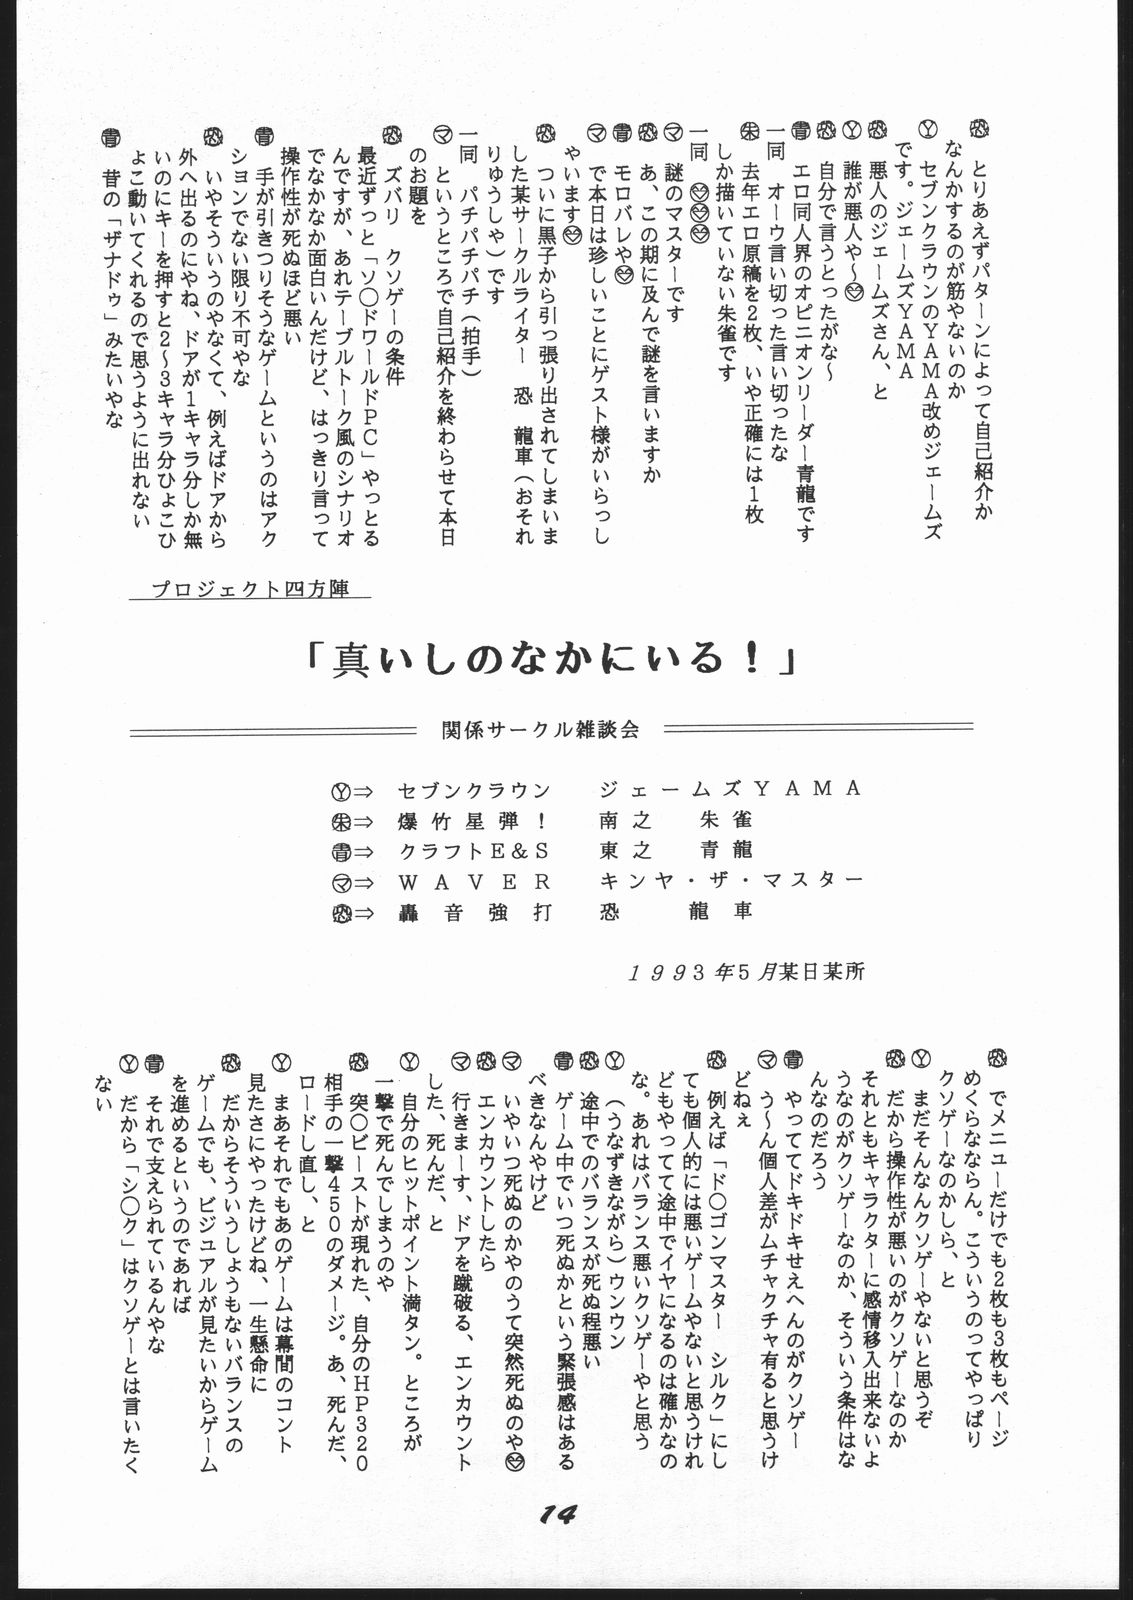 恐　とりあえずパターンによって自己紹介か
なんかするのが筋やないのか
Ⓨ　セブンクラウンのYAMA改めジェームズ
です。ジェームズYAMA
恐　悪人のジェームズさん、と
Ⓨ　誰が悪人や～
恐　自分で言うとったがな～
青　エロ同人界のオピニオンリーダー青龍です
一同　オーウ言い切った言い切ったな
朱　去年エロ原稿を2枚、いや正確には1枚
しか描いていない朱雀です
一同
マ　謎のマスターです
恐　あ、この期に及んで謎を言いますか
青　モロバレや
マ　で本日は珍しいことにゲスト様がいらっし
ゃいます
恐　ついに黒子から引っ張り出されてしまいま
した某サークルライター　恐　龍車（おそれ
りゅうしゃ）です
一同　パチパチパチ（拍手）
マ　というところで自己紹介を終わらせて本日
のお題を
恐　ズバリ　クソゲーの条件
最近ずっと「ソ〇ドワールドPC」やっとる
んですが、あれテーブルトーク風のシナリオ
でなかなか面白いんだけど、はっきり言って
操作性が死ぬほど悪い
青　手が引きつりそうなゲームというのはアク
ションでない限り不可やな
恐　いやそういうのやなくて、例えばドアから
外へ出るのにやね、ドアが1キャラ分しか無
いのにキーを押すと2～3キャラ分ひょこひ
ょこ動いてくれるので思うように出れない
青　昔の「ザナドゥ」みたいやな
プロジェクト四方陣
「真いしのなかにいる！」
関係サークル雑談会
Ⓨ⇒　セブンクラウン　ジェームズYAMA
朱⇒　爆竹星弾！　南之　朱雀
青⇒　クラフトE＆S　東之　青龍
マ⇒　WAVER　キンヤ・ザ・マスター
恐⇒　轟音強打　恐　龍車
1993年5月某日某所
恐　でメニューだけでも2枚も3枚もページ
めくらなならん。こういうのってやっぱり
クソゲーなのかしら、と
Ⓨ　まだそんなんクソゲーやないと思うぞ
恐　だから操作性が悪いのがクソゲーなのか
それともキャラクターに感情移入出来ないよ
うなのがクソゲーなのか、そういう条件はな
んなのだろう
青　やっててドキドキせえへんのがクソゲー
マ　う～ん個人差がムチャクチャ有ると思うけ
どねぇ
恐　例えば「ド〇ゴンマスター　シルク」にし
ても個人的には悪いゲームやないと思うけれ
どもやってて途中でイヤになるのは確かなの
な。あれはバランス悪いクソゲーやと思う
Ⓨ　（うなずきながら）ウンウン
恐　途中でのバランスが死ぬ程悪い
青　ゲーム中でいつ死ぬかという緊張感はある
べきなんやけど
マ　いやいつ死ぬのかやのうて突然死ぬのや
恐　エンカウントしたら
マ　行きまーす、ドアを蹴破る、エンカウント
した、死んだ、と
Ⓨ　自分のヒットポイント満タン。ところが
一撃で死んでしまうのや
恐　突〇ビーストが現れた、自分のHP320
相手の一撃450のダメージ。あ、死んだ、
ロードし直し、と
Ⓨ　まあそれでもあのゲームは幕間のコント
見たさにやったけどね、一生懸命に
恐　だからそういうしょうもないバランスの
ゲームでも、ビジュアルが見たいからゲーム
を進めるというのであれば
青　それで支えられているんやな
Ⓨ　だから「シ〇ク」はクソゲーとは言いたく
ない
14